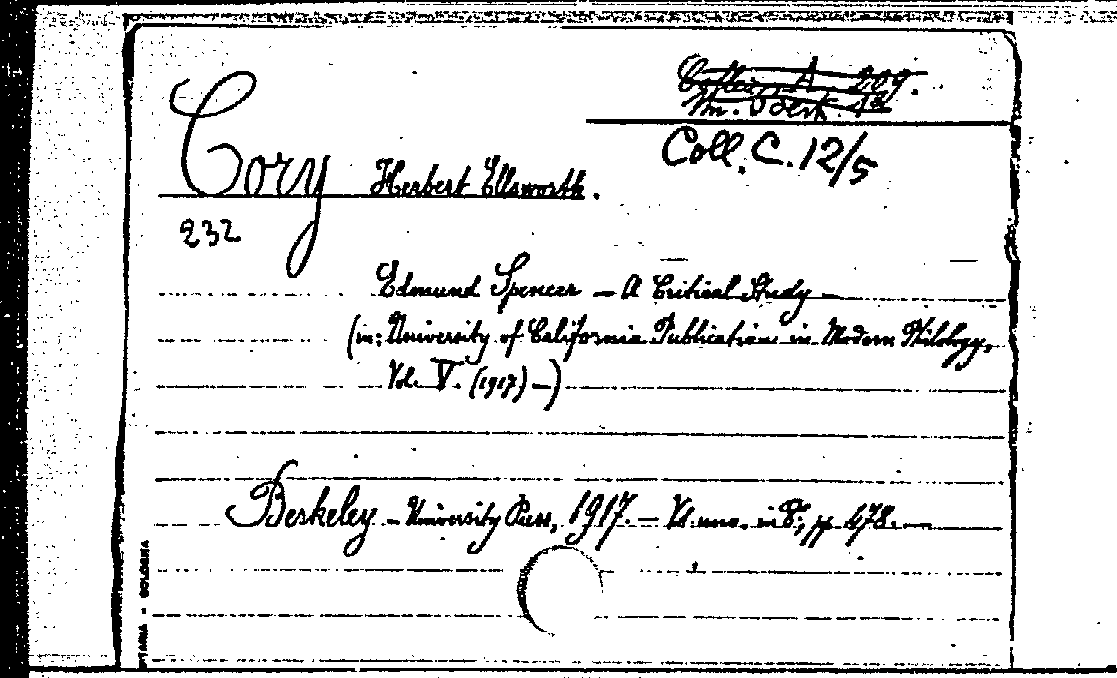 A 209.
Coll. C. 12/5
Cory Herbert Ellsworth.
232
Edmund Spencer – A Critical Study –
(in: University of California Publications in Modern Philology,
Vol. V. (1917) –)
Berkeley – University Press, 1917. – Vol. uno. in 8°, pp. 478. –
BOLOGNA